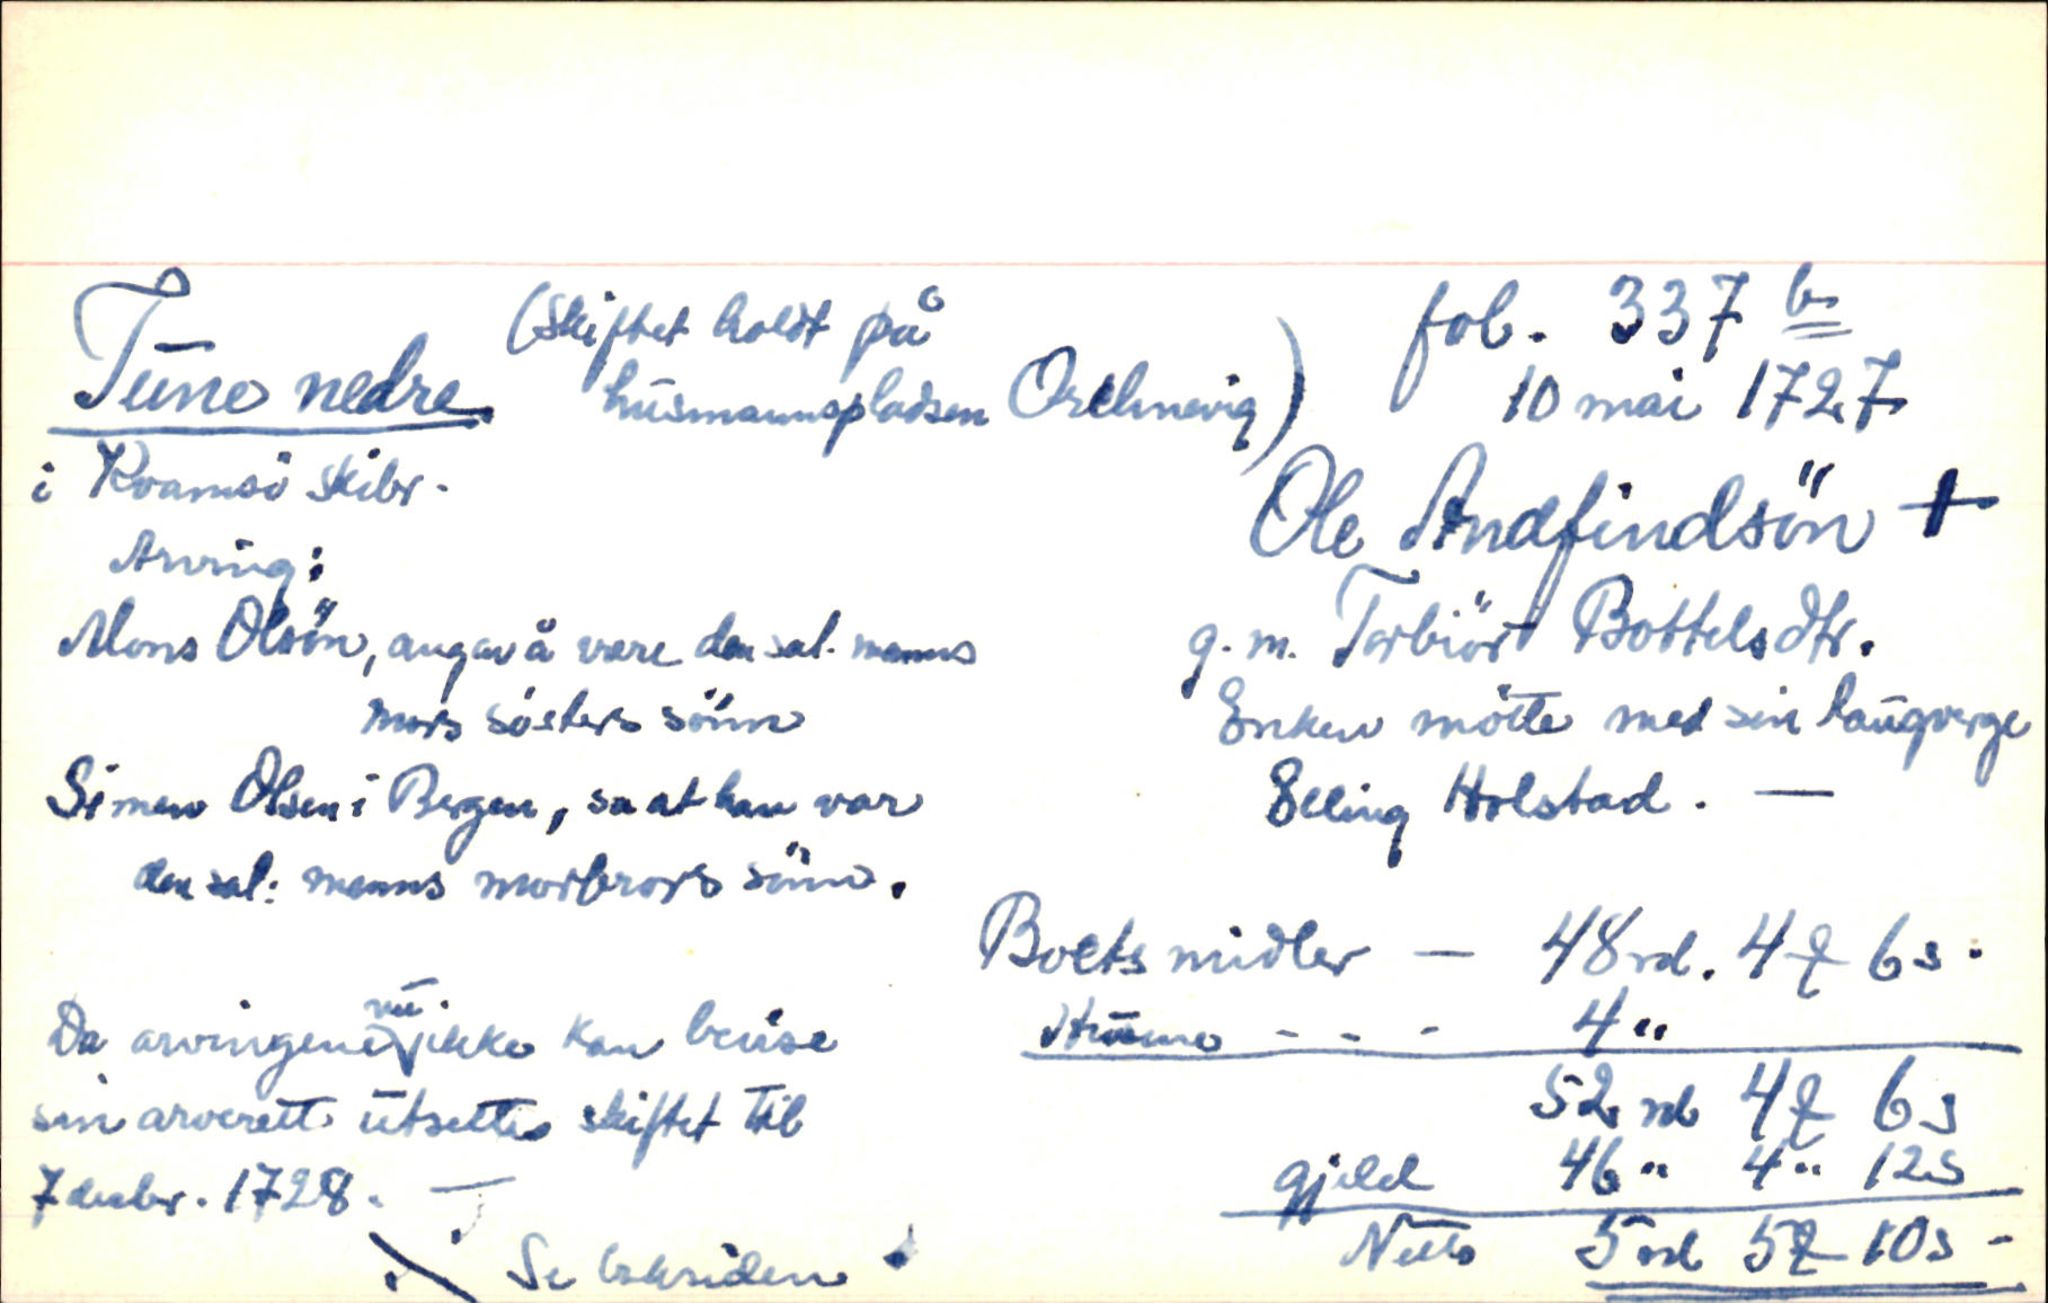 Tune nedre (Skiftet holdt på
husmannspladsen Ortnevig)
i Kvamsö skibr.
Arving:
Mons Olsön, angav å være den sal. manns
mors sösters sönn
Simen Olsen i Bergen, sa at han var
den sal: manns morbrors sönn.
Da arvingene nu ikke kan bevise
sin arverett utsettes skiftet til
7 decbr. 1728. —
Se baksiden
fol. 337 b
10 mai 1727
Ole Andfindsön +
g. m. Torbiör Bottelsdtr.
Enken mötte med sin laugverge
Elling Holstad. —
Boets midler — 48 rd. 4 ƶ 6 s.
Husene - - - 4 "
52 rd 4 ƶ 6 s
gjeld 46 " 4 " 12 s
Netto 5 rd 5 ƶ 10 s -